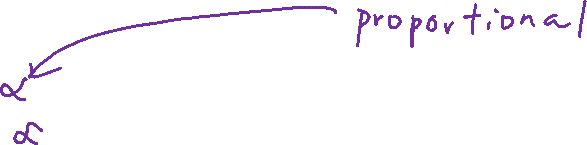 proportional
∝
∝